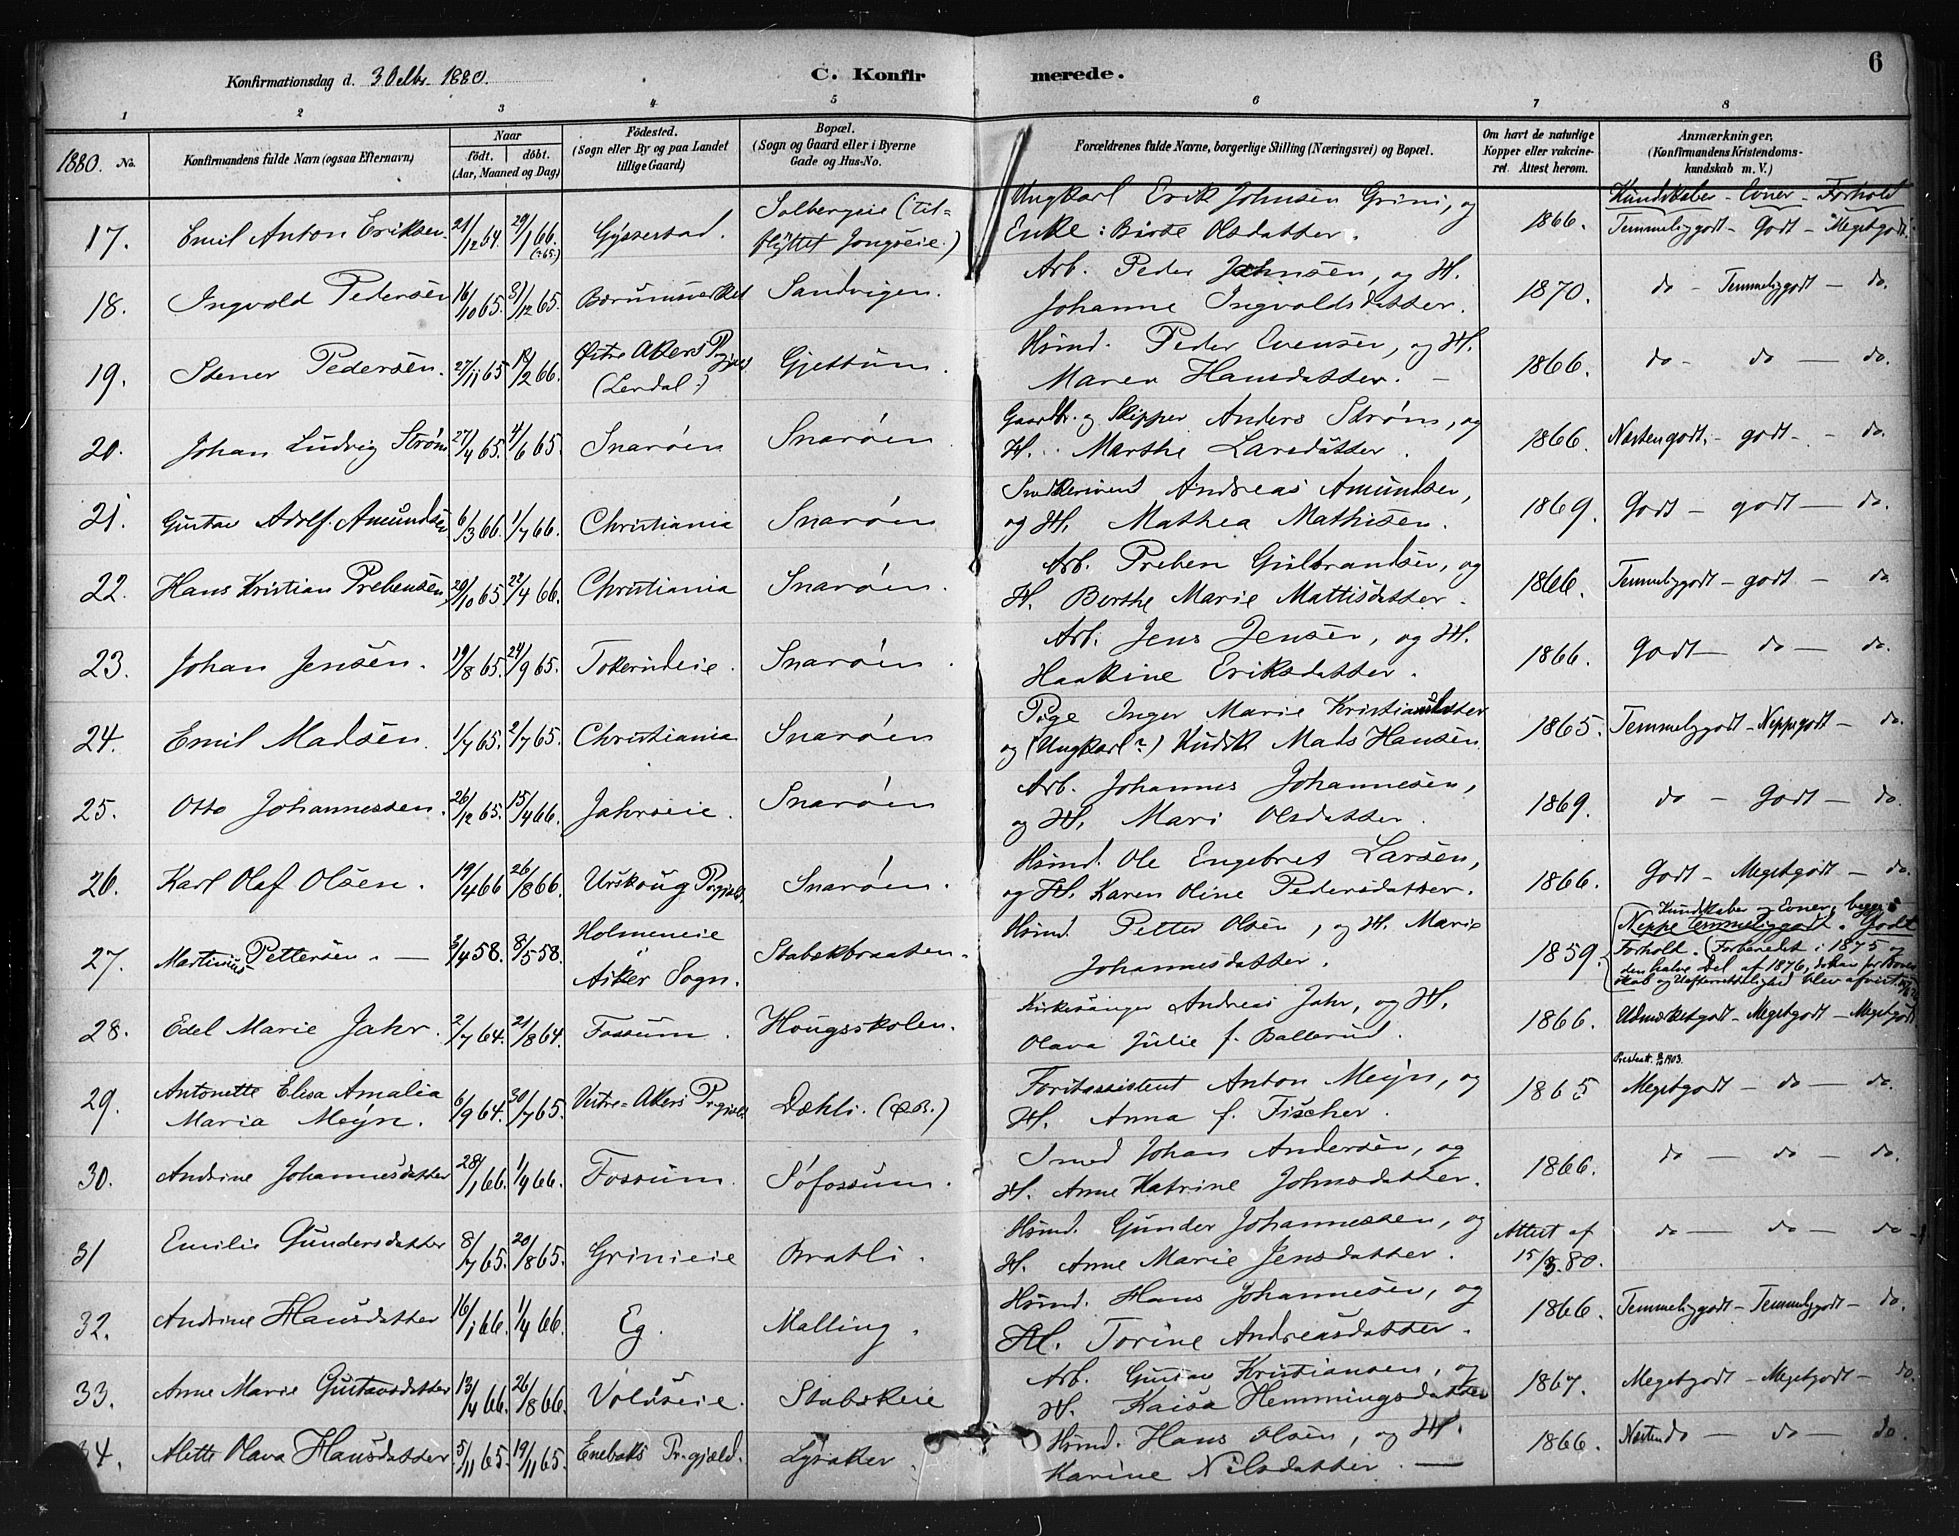 6
Konfirmationsdag d. 3 Octbr. 1880.
C. Konfirmerede.
1 2 3 4 5 6 7 8
1880. No.
Konfirmandens fulde Navn (ogsaa Efternavn)
Naar
födt. döbt.
(Aar, Maaned og Dag)
Födested.
(Sogn eller By og paa Landet
tillige Gaard)
Bopæl.
(Sogn og Gaard eller i Byerne
Gade og Hus-No.
Forældrenes fulde Navne, borgerlige Stilling (Næringsvei) og Bopæl.
Om havt de naturlige
Kopper eller vakcine-
ret. Attest herom.
Anmærkninger,
(Konfirmandens Kristendoms-
kundskab m. V.)
Kundskaber - Evner - Forhold
17. Emil Anton Eriksen 21/12 64. 29/1 66. (?65.) Gyssestad. Solbergeie (til-
flyttet Jongseie.) Ungkarl Erik Johnsen Grini, og
Enke: Birte Olsdatter. 1866. Temmeliggodt - Godt - Megetgodt.
18. Ingvold Pedersen 16/10 65. 31/12 65. Bærumsverket Sandvigen. Arb. Peder Johnsen, og H.
Johanne Ingvoldsdatter. 1870. do - Temmeliggodt - do.
19. Stener Pedersen. 27/11 65 18/2 66. Østre Akers Prgjæld
(Lerdal.) Gjettum. Hsmd. Peder Evensen, og H.
Maren Hansdatter. - 1866. do - do - do.
20. Johan Ludvig Strøm 27/4 65. 4/6 65. Snarøen Snarøen. Gaardbr. og Skipper Anders Strøm, og
H. Marthe Larsdatter. 1866. Næstengodt. - godt - do.
21. Gustav Adolf Amundsen 6/3 66. 1/7 66. Christiania Snarøen Andreas Amundsen,
og H. Mathea Mathisen. 1869. Godt - godt - do.
22. Hans Kristian Prebensen 20/10 65. 22/4 66. Christiania Snarøen. Arb. Preben Gulbrandsen, og
H. Berthe Marie Mattisdatter. 1866. Temmeliggodt - godt - do
23. Johan Jensen. 19/8 65. 24/9 65. Tokerudeie. Snarøen. Arb. Jens Jensen, og H.
Haakine Eriksdatter. 1866. Godt - do - do.
24. Emil Madsen. 1/7 65. 2/7 65. Christiania Snarøen Pige Inger Marie Kristiansdatter
og (Ungkarl?) Kudsk Mads Hansen. 1865. Temmeliggodt - Neppegodt - do.
25. Otto Johannessen. 26/12 65. 15/4 66. Jahrseie. Snarøen Arb. Johannes Johannesen,
og H. Mari Olsdatter. 1869. do - Godt - do.
26. Karl Olaf Olsen. 19/4 66 26/8 66. Urskoug Prgjæld. Snarøen. Hsmd. Ole Engebret Larsen,
og H. Karen Oline Pedersdatter. 1866. Godt - Megetgodt - do.
27. Martinus Pettersen. - 3/4 58. 8/5 58. Holmeneie
i Asker Sogn. Stabækbraaten. Hsmd. Petter Olsen, og H. Marie
Johannesdatter. 1859. Kundskaber og Evner, begge
Neppe Temmeliggodt. Godt
Forhold. (Forberedet i 1875 og
den halve Del af 1876, da han for
skab og Uefterrettelighed blev afvist.
28. Edel Marie Jahr. 2/7 64. 21/8 64. Fossum. Hougsskolen. Kirkesanger Andreas Jahr, og H.
Olava Julie f. Ballerud. 1866. Udmærketgodt - Megetgodt - Megetgodt
29. Antonette Elisa Amalia
Maria Meyn. 6/9 64. 30/7 65. Vestre-Akers Prgjæld. Dæhli. (Ø.B.) Forstassistent Anton Meyn, og
H. Anna f. Fischer. 1865 Megetgodt - do - do.
30. Andrine Johannesdatter 28/1 66. 1/4 66. Fossum. Søfossum. Smed Johan Andersen, og
H. Anne Katrine Johnsdatter. 1866. do - do - do.
31 Emilie Gundersdatter 8/7 65. 20/8 65. Grinieie Bratli. Hsmd. Gunder Johannessen, og
H. Anne Marie Jensdatter. Attest af
15/3. 80. do - do - do
32. Andrine Hansdatter 16/1 66. 1/4 66. Eg. Malling. Hsmd. Hans Johannesen, og
H. Torine Andreasdatter. 1866. Temmeliggodt - Temmeliggodt - do.
33. Anne Marie Gustavsdatter 13/4 66. 26/8 66. Voldseie. Stabækeie Arb. Gustav Kristiansen, og
H. Kaisa Hemmingsdatter 1867. Megetgodt - Megetgodt - do.
34. Alette Olava Hansdatter 5/11 65. 19/11 65. Enebaks Pr.gjæld. Lysaker. Hsmd. Hans Olsen, og H.
Karine Nilsdatter. - 1866. Næsten do - do - do.